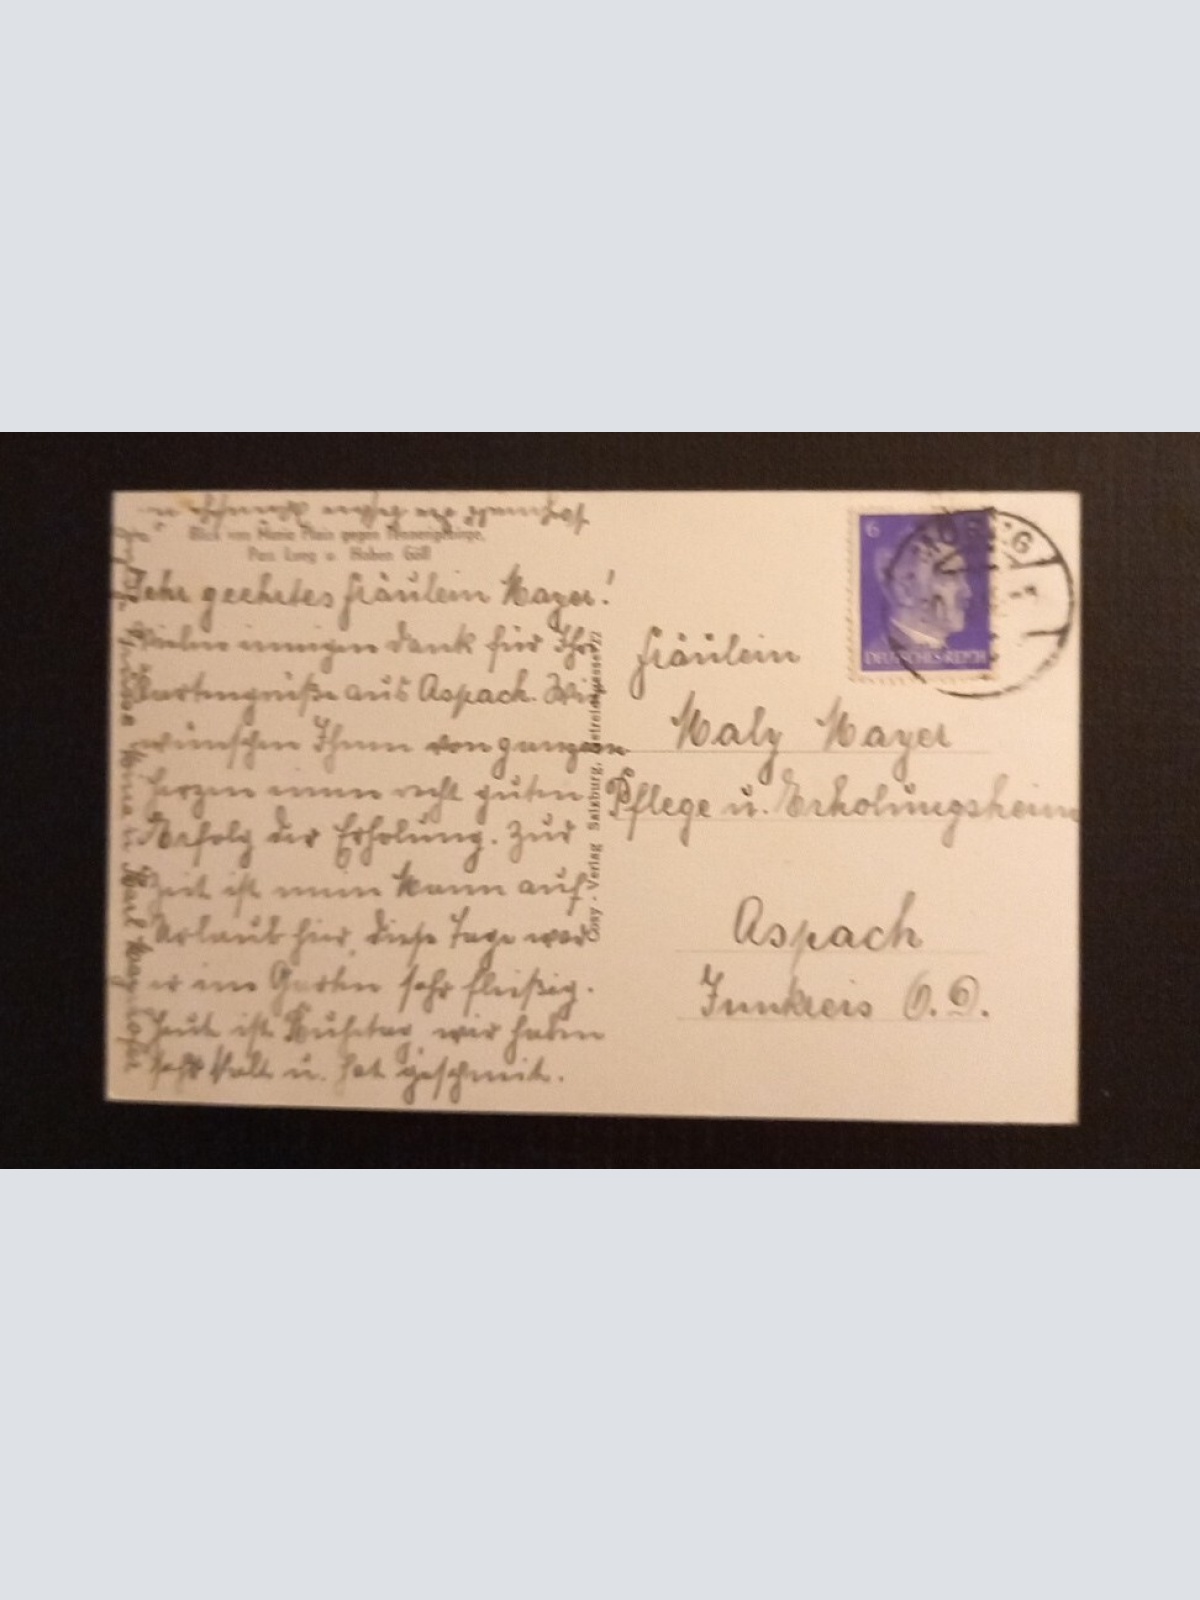 Blick von Maria Plain gegen Tennengebirge,
Pass Lueg u. Hohen Göll
Sehr geehrtes Fräulein Mayer!
Vielen innigen Dank für Ihre
Kartengrüße aus Aspach. Wir
wünschen Ihnen von ganzem
Herzen einen recht guten
Erfolg der Erholung. Zur
Zeit ist mein Mann auf
Urlaub hier, diese Tage war
er im Garten sehr fleißig.
Heute ist Ruhetag, wir haben
sehr kalt u. hat geschneit.
Cosy-Verlag Salzburg, Getreidegasse 22
6
DEUTSCHES REICH
Fräulein
Maly Mayer
Pflege u. Erholungsheim
Aspach
Innkreis O. D.